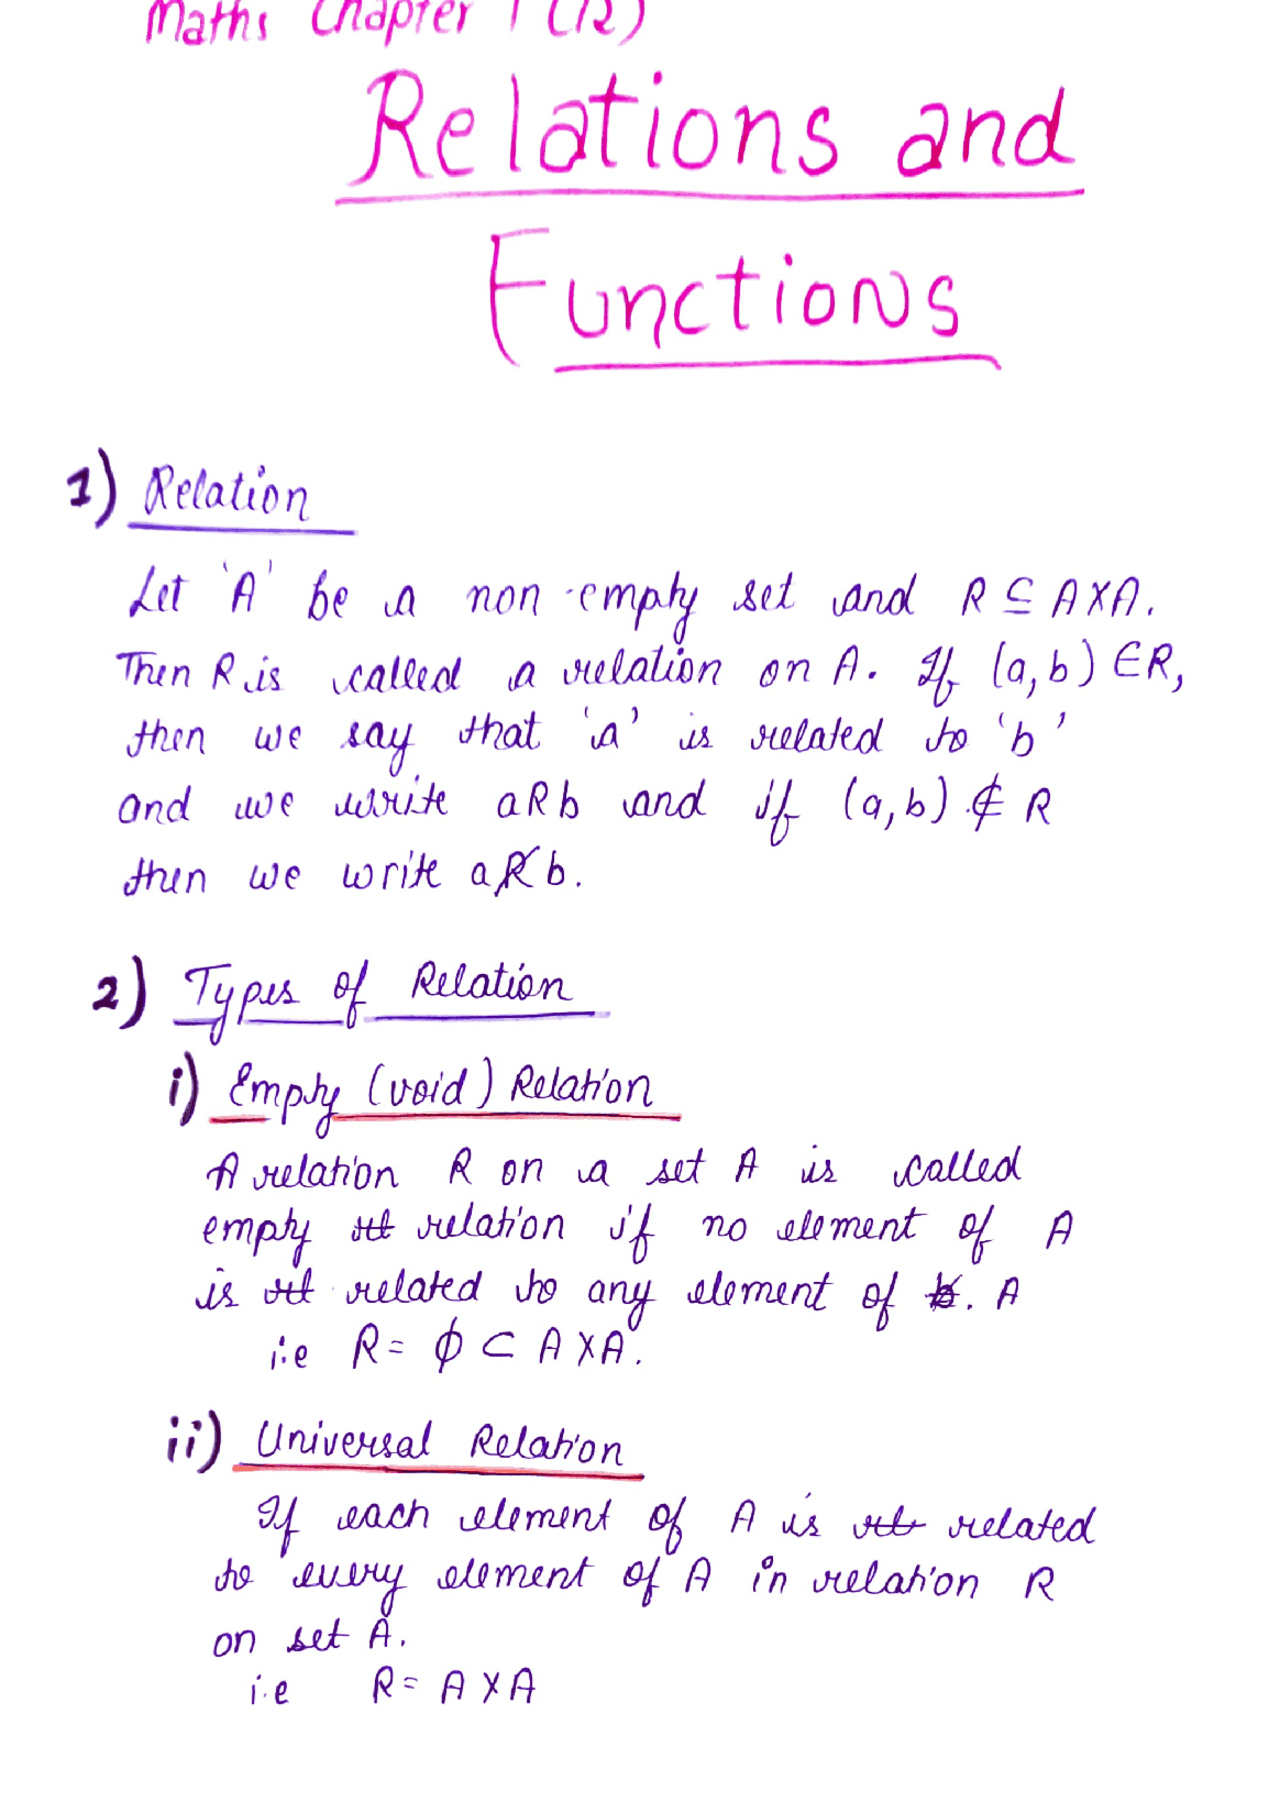 Maths Chapter 1 (12)
Relations and
Functions
1) Relation
Let 'A' be a non-empty set and R ⊆ A×A.
Then R is called a relation on A. If (a,b) ∈R,
then we say that 'a' is related to 'b'
and we write aRb and if (a,b) ∉ R
then we write aR̸b.
2) Types of Relation
i) Empty (void) Relation
A relation R on a set A is called
empty relation if no element of A
is related to any element of A
i.e R= ϕ ⊂ A×A.
ii) Universal Relation
If each element of A is related
to every element of A in relation R
on set A.
i.e R= A×A